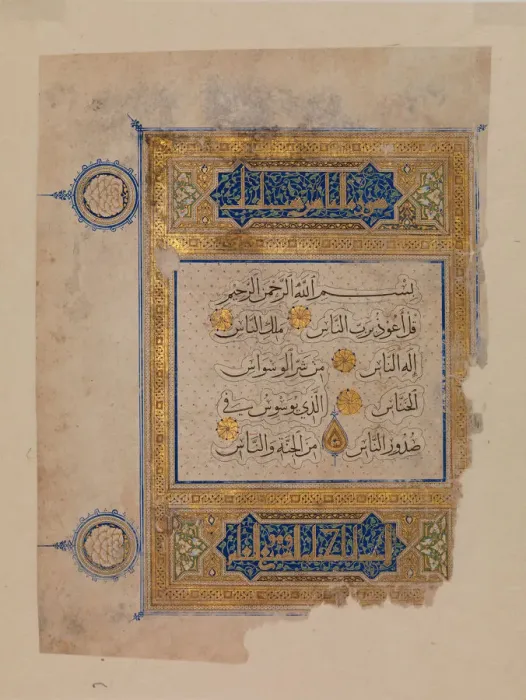 سورة الناس
بِسْمِ اللَّهِ الرَّحْمٰنِ الرَّحِيمِ
قُلْ أَعُوذُ بِرَبِّ النَّاسِ مَلِكِ النَّاسِ
إِلٰهِ النَّاسِ مِنْ شَرِّ الْوَسْوَاسِ
الْخَنَّاسِ الَّذِي يُوَسْوِسُ فِي
صُدُورِ النَّاسِ مِنَ الْجِنَّةِ وَالنَّاسِ